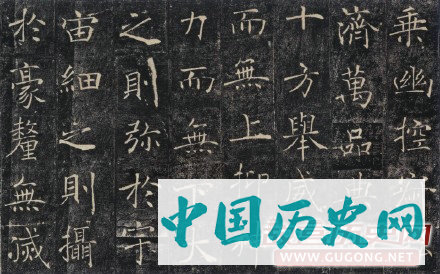 乘幽控
濟萬品典
十方舉威
而無上抑
力而無下大
之則弥於宇
宙細之則攝
於豪釐無滅
中国历史网
WWW.GUGONG.NET